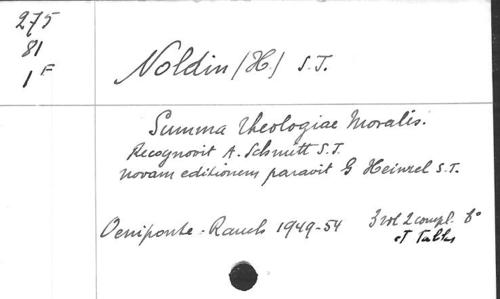 275
81
1 F
Noldin (H) S.J.
Summa theologiae moralis.
Recognovit A. Schmitt S.J.
novam editionem paravit G Heinzel S.J.
Oeniponte - Rauch 1949-54 3 vol 2 compl. 8°
et Tables